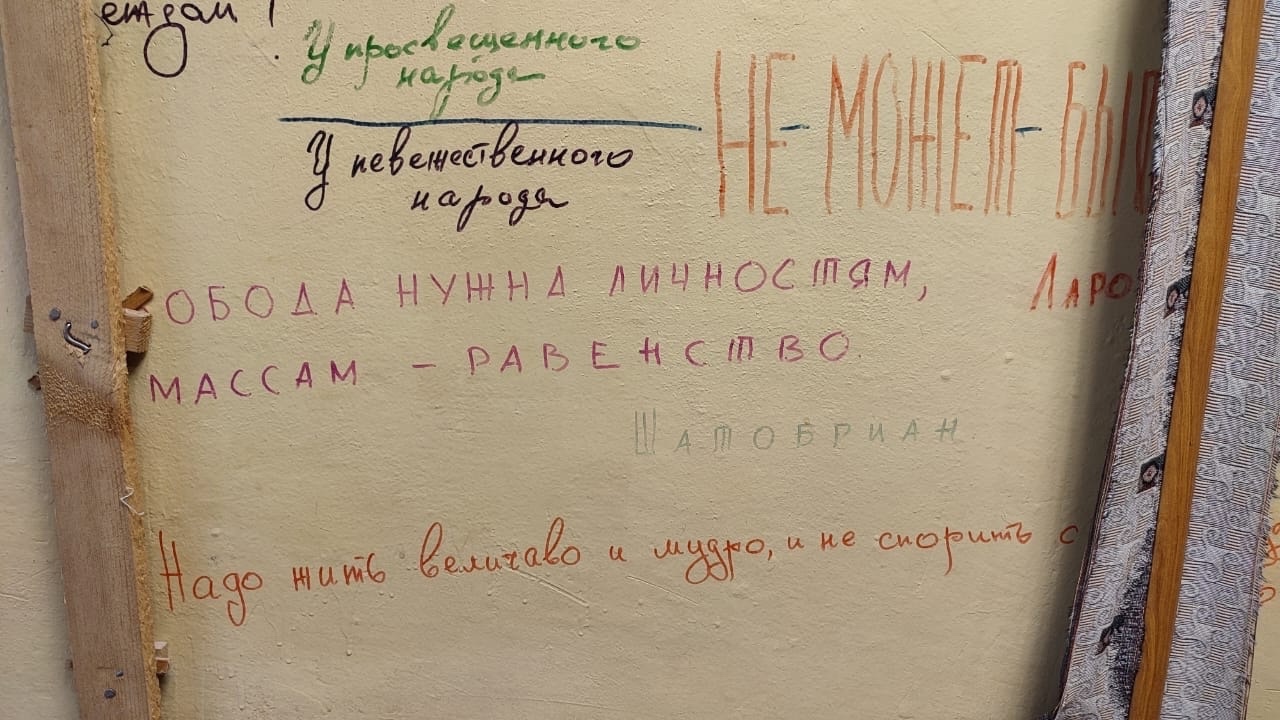 ендам!
У просвещенного
народа
У невежественного
народа
НЕ-МОЖЕТ-БЫ
ОБОДА НУЖНА ЛИЧНОСТЯМ,
МАССАМ – РАВЕНСТВО.
ЛАРО
ШАТОБРИАН.
Надо жить величаво и мудро, и не спорить с